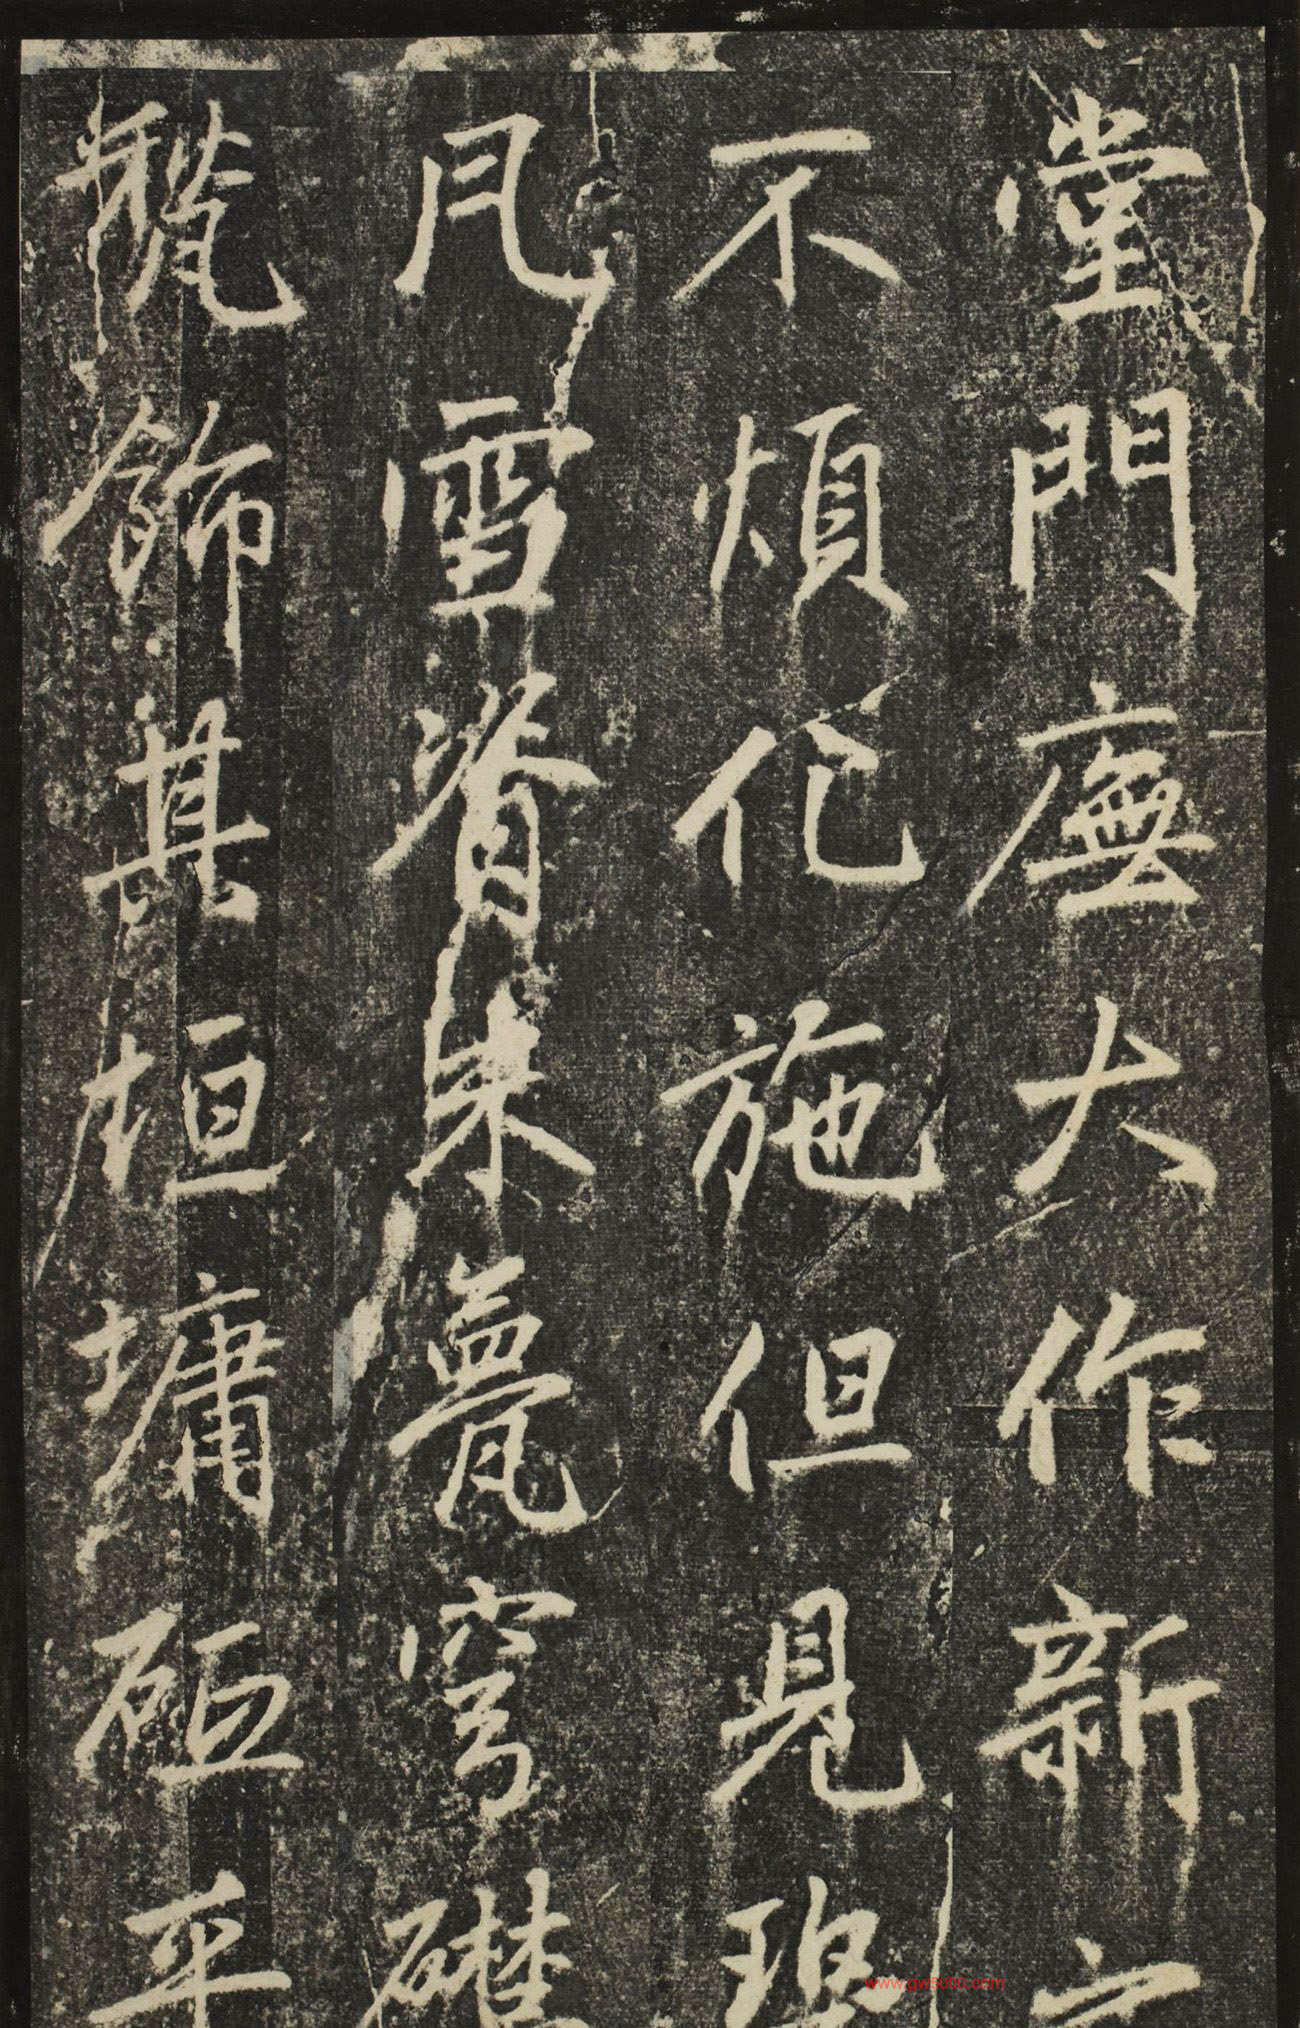 堂門廡大作新
不煩化施但見
風雪脊朱甍穹礎
甃飾其垣墉砥平
www.gw5000.com